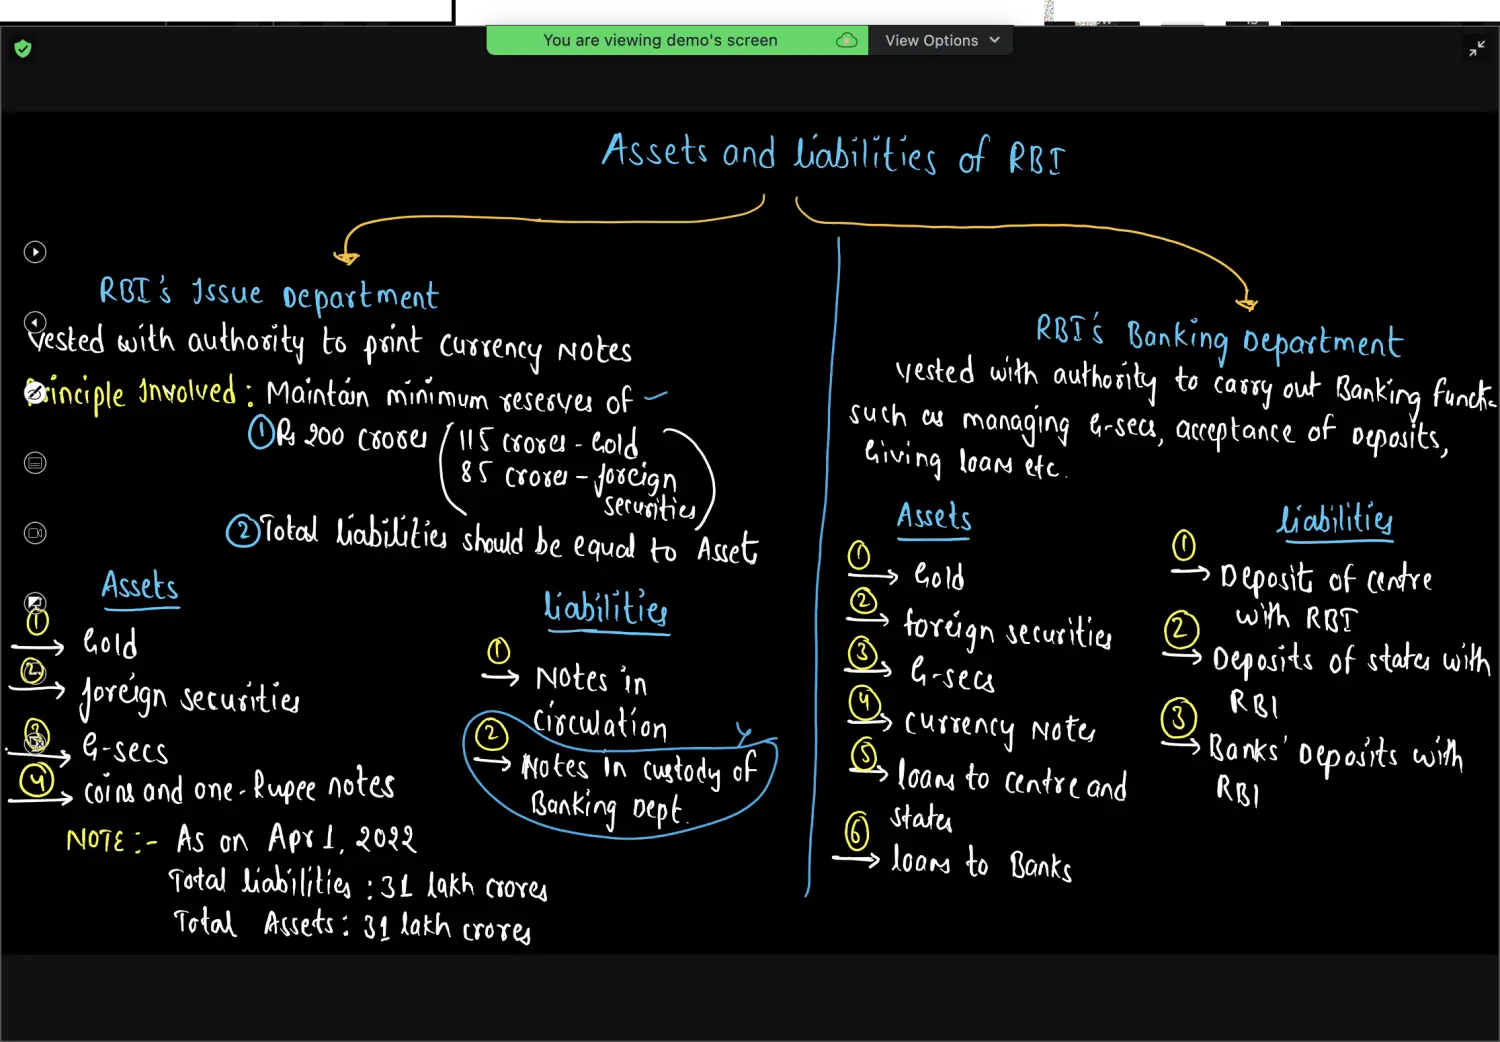 You are viewing demo's screen
View Options
Assets and liabilities of RBI
RBI's Issue Department
Vested with authority to print currency Notes
Principle Involved: Maintain minimum reserves of
① Rs 200 crores (115 crores - Gold
85 crores - foreign
securities)
② Total liabilities should be equal to Assets
Assets
① Gold
② foreign securities
③ G-secs
④ coins and one-Rupee notes
liabilities
① Notes in
circulation
② Notes in custody of
Banking Dept.
NOTE:- As on Apr 1, 2022
Total liabilities : 31 lakh crores
Total Assets: 31 lakh crores
RBI's Banking Department
vested with authority to carry out Banking funct-
such as managing G-secs, acceptance of Deposits,
Giving loans etc.
Assets
① Gold
② foreign securities
③ G-secs
④ currency Notes
⑤ loans to centre and
states
⑥ loans to Banks
liabilities
① Deposit of centre
with RBI
② Deposits of states with
RBI
③ Banks' Deposits with
RBI